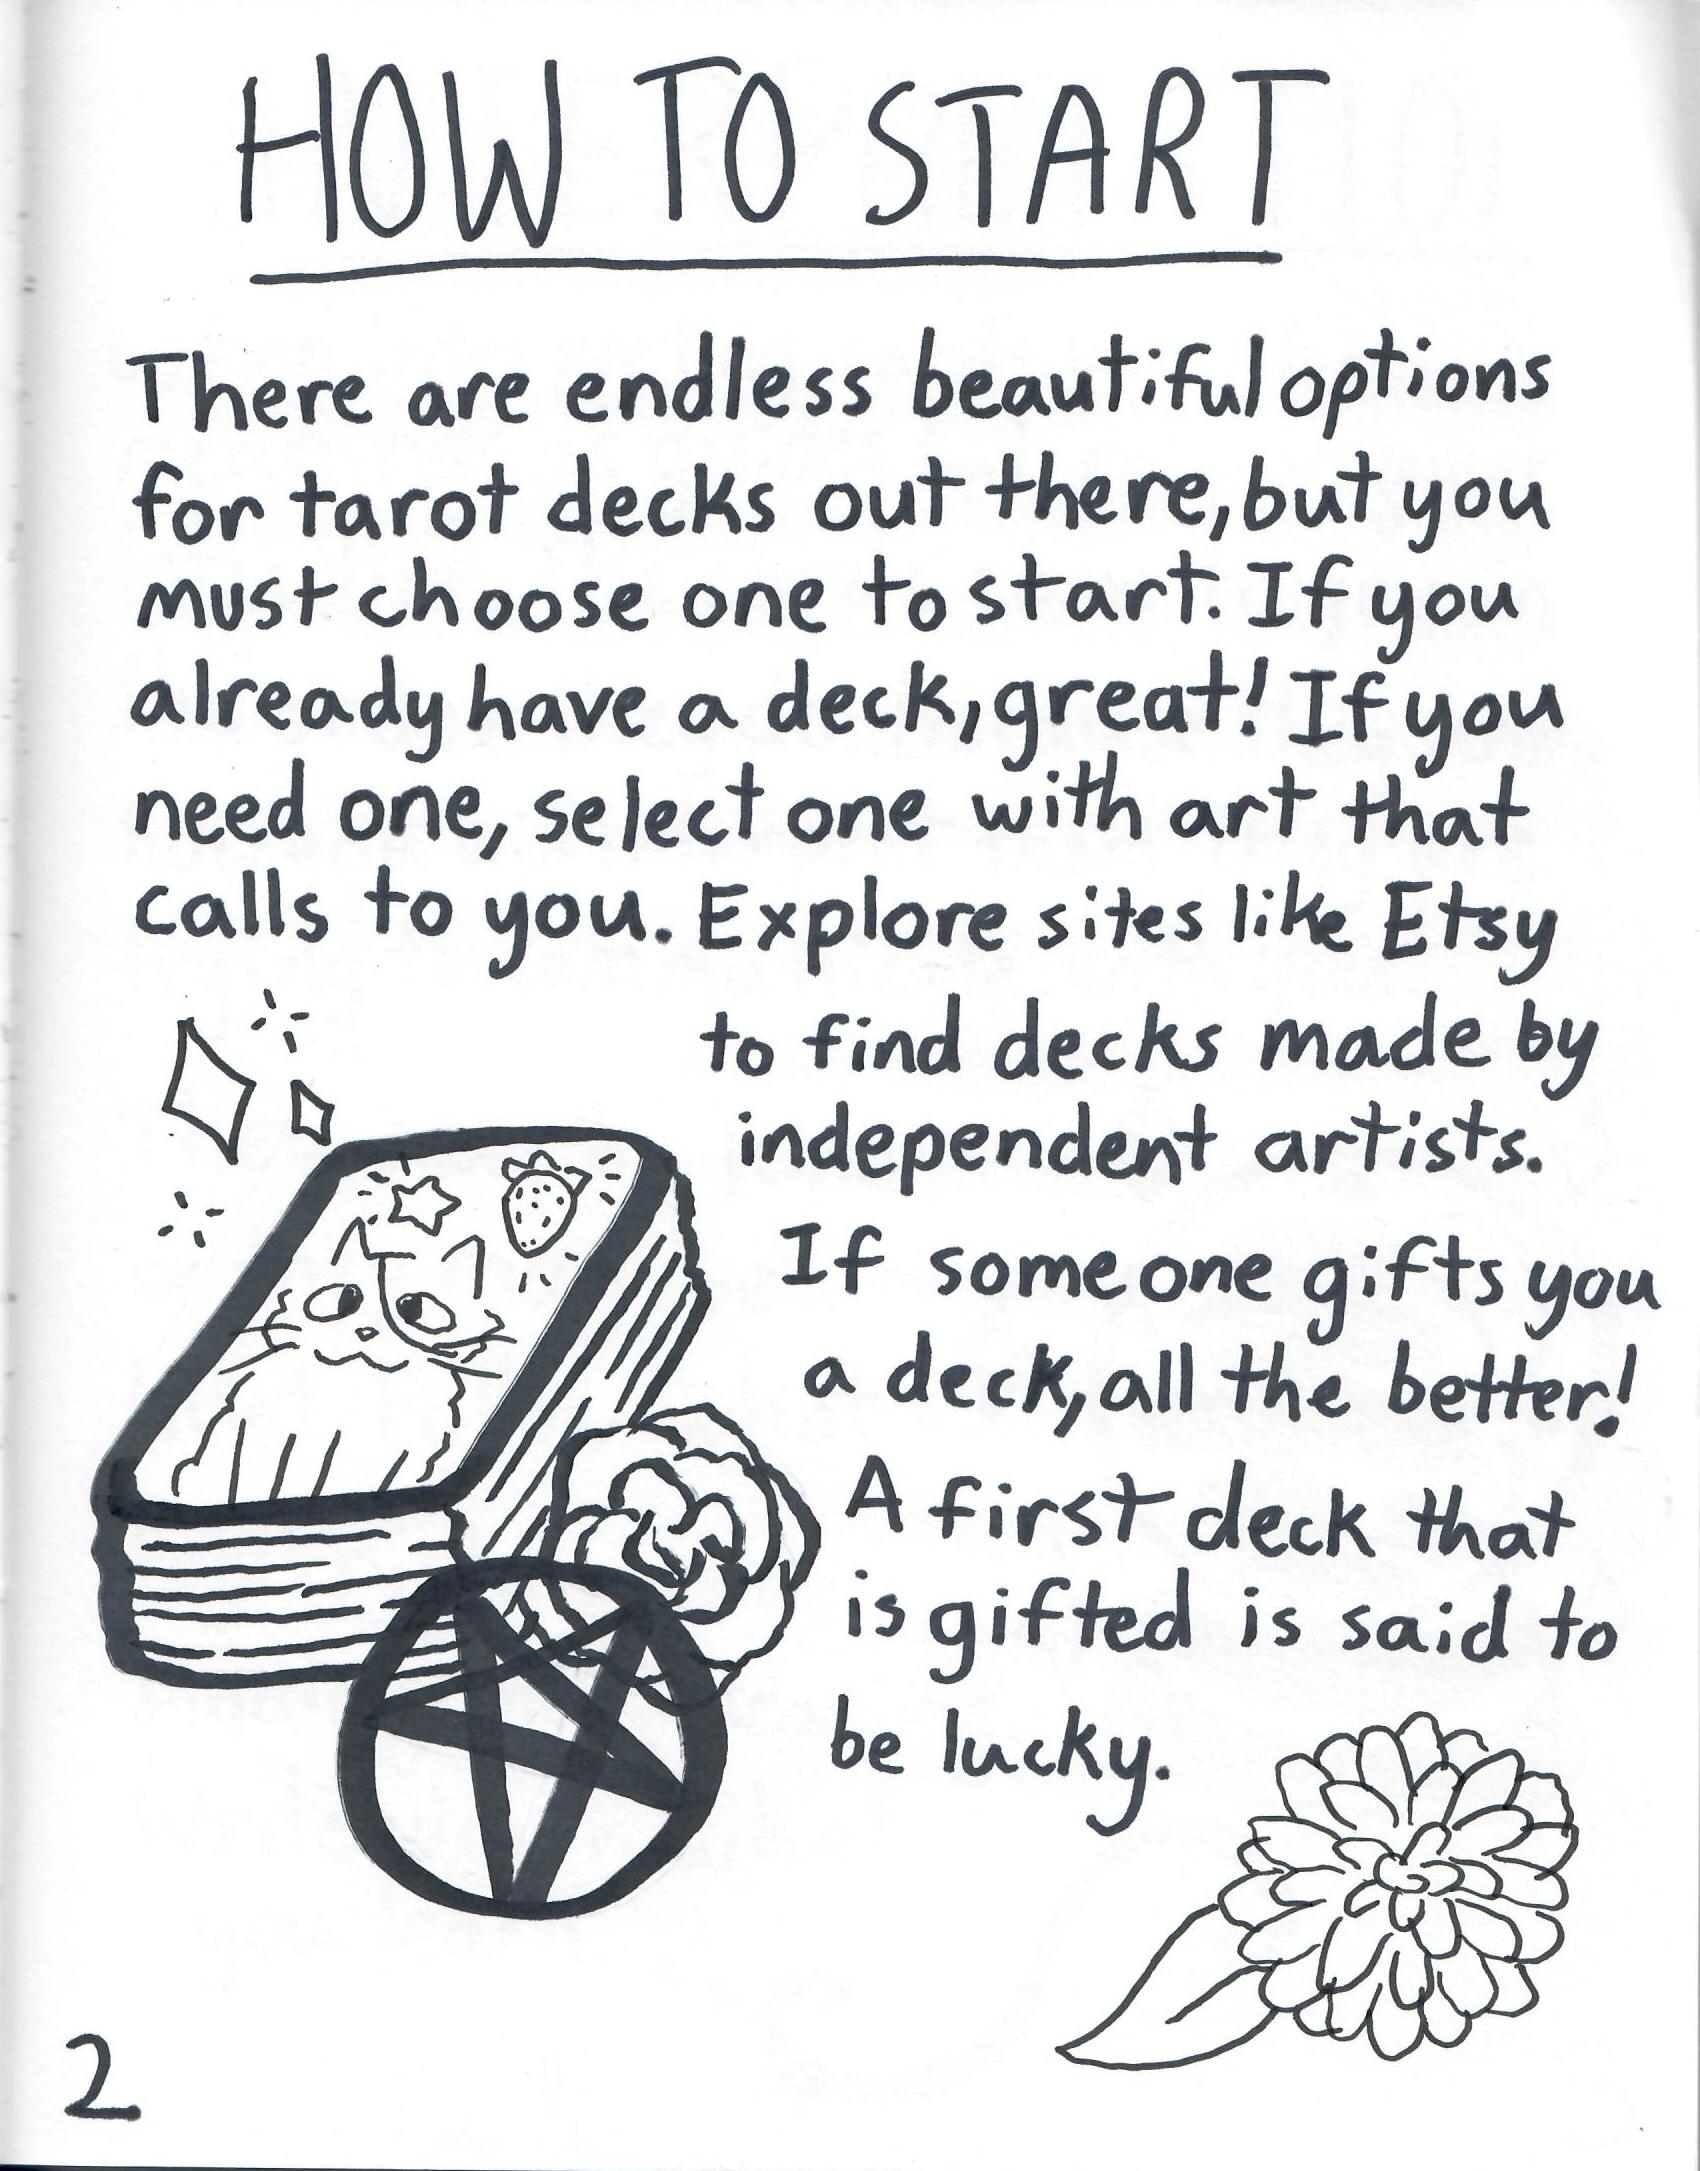 HOW TO START
There are endless beautiful options
for tarot decks out there, but you
must choose one to start. If you
already have a deck, great! If you
need one, select one with art that
calls to you. Explore sites like Etsy
to find decks made by
independent artists.
If someone gifts you
a deck, all the better!
A first deck that
is gifted is said to
be lucky.
2